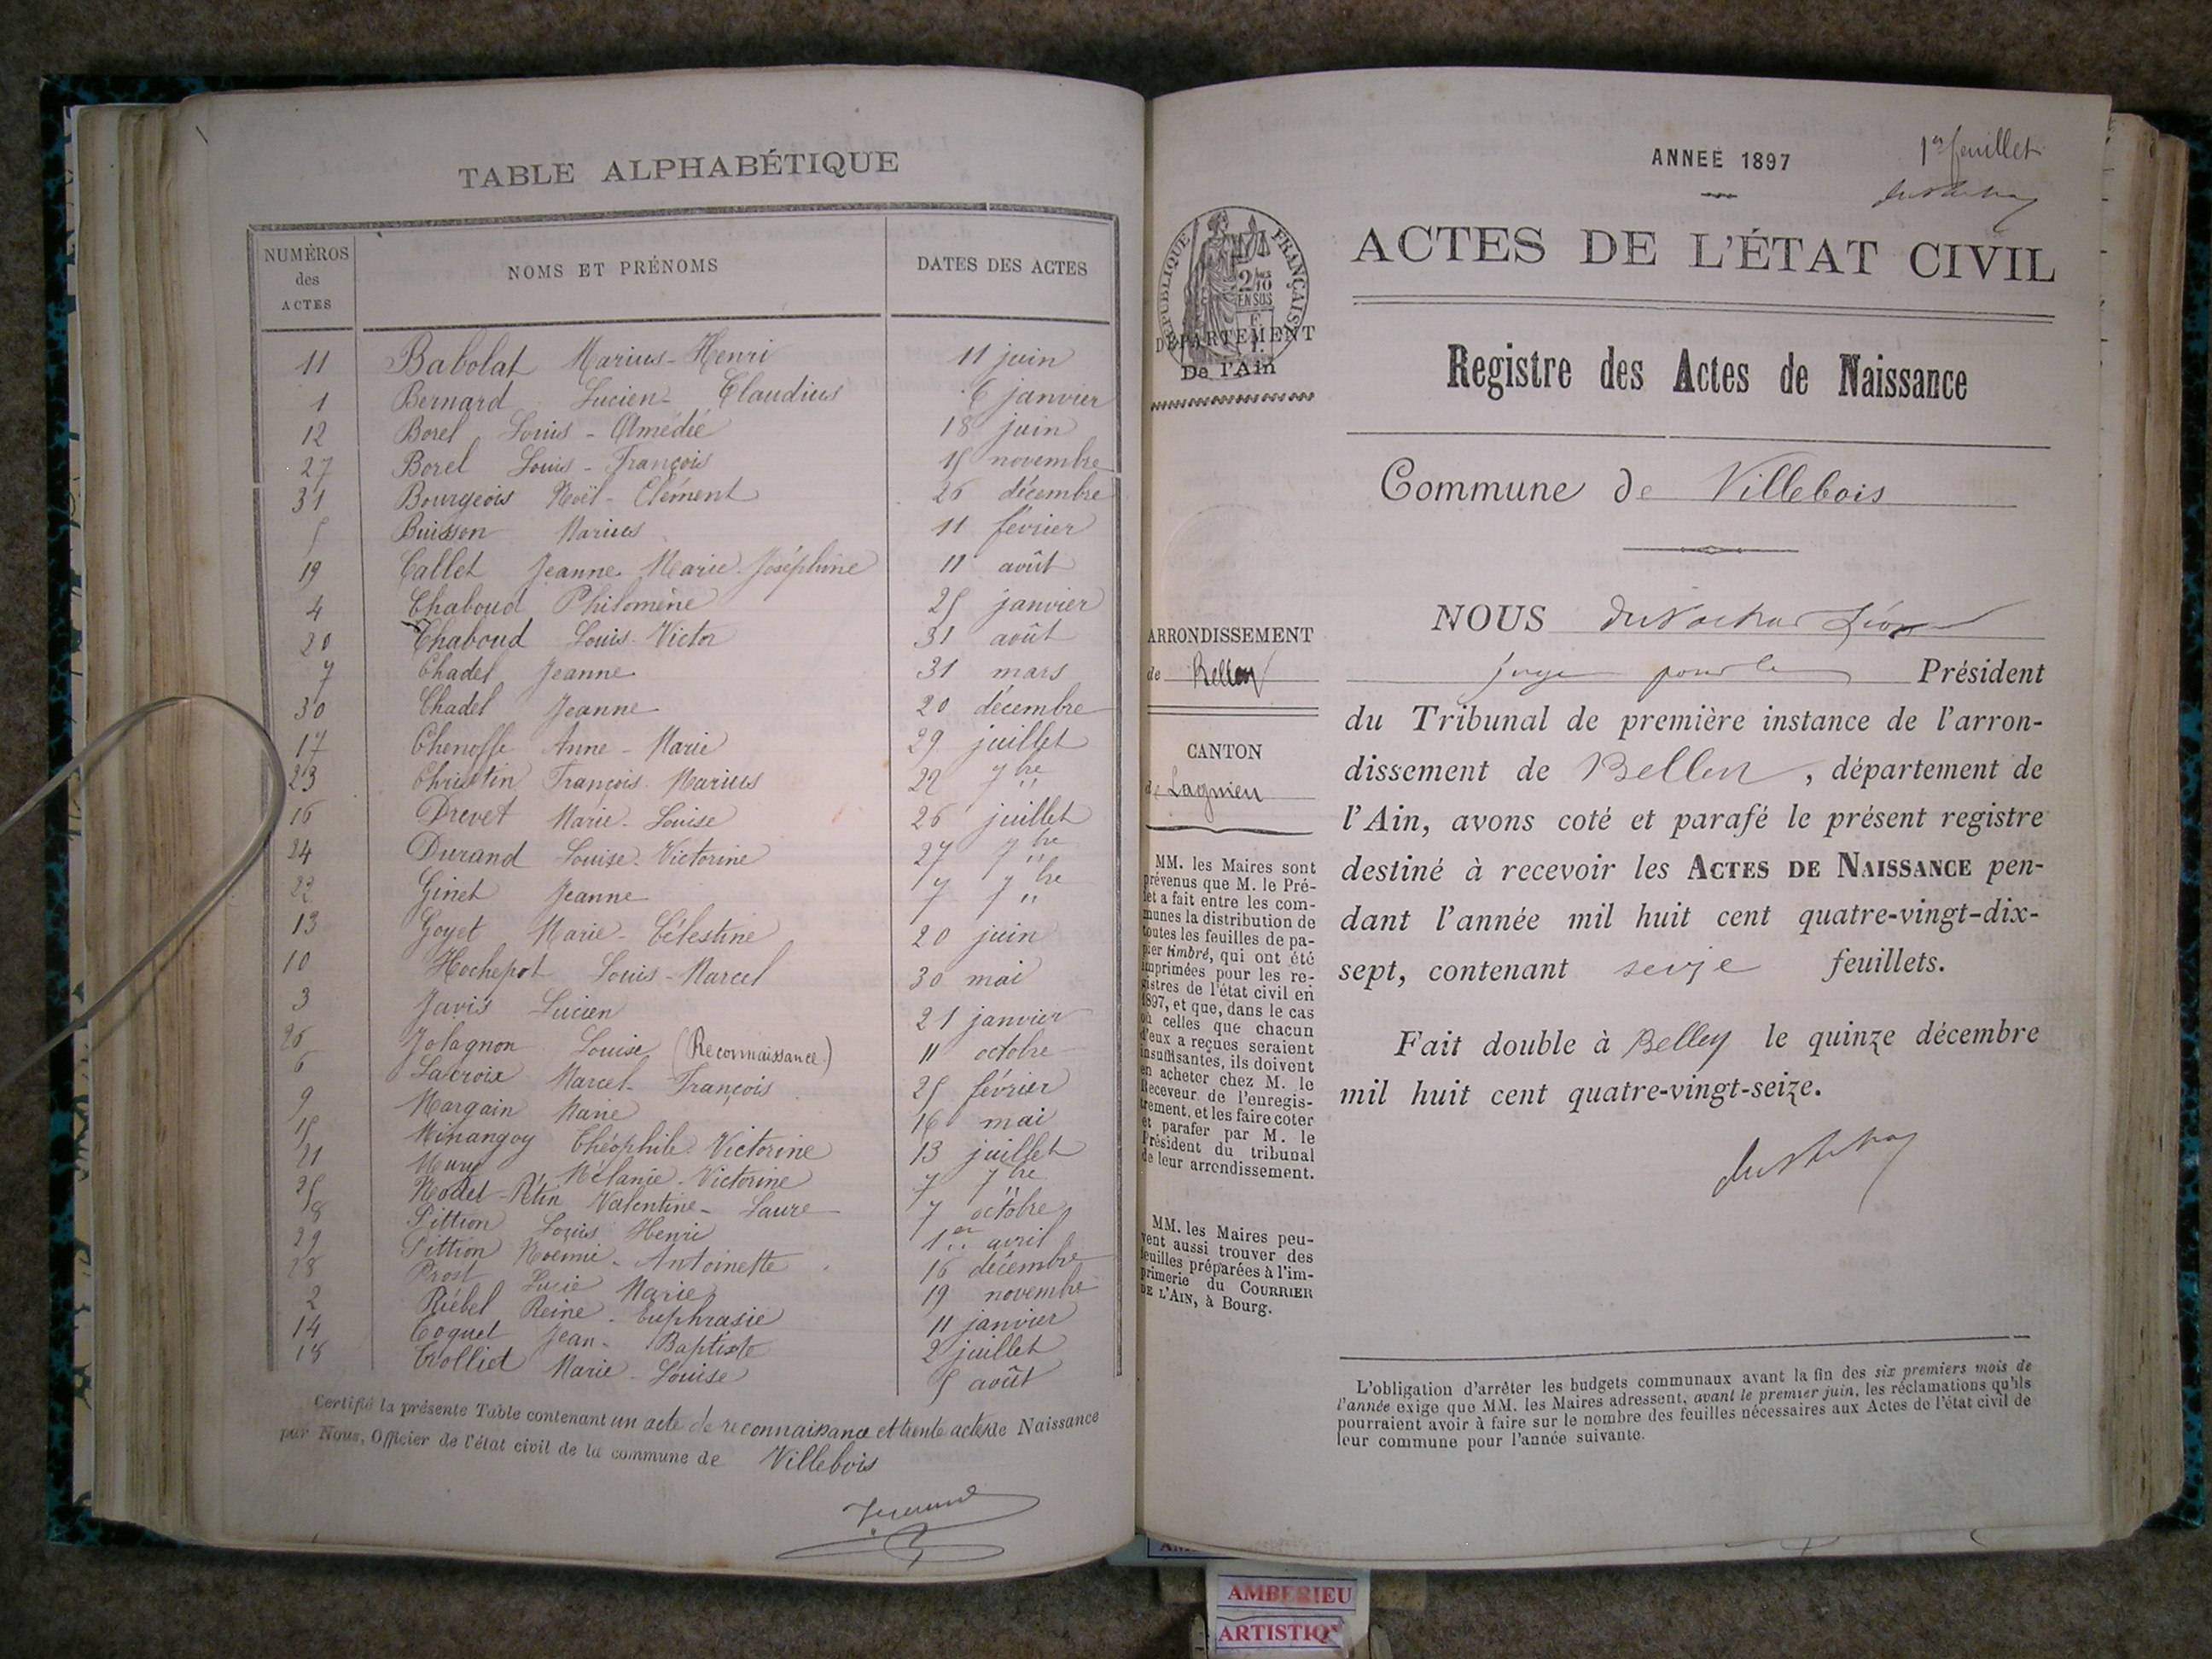 TABLE ALPHABÉTIQUE
NUMÉROS des ACTES NOMS ET PRÉNOMS DATES DES ACTES
11 Babolat Marius-Henri 11 juin
1 Bernard Lucien-Claudius 6 janvier
12 Borel Louis-Amédié 18 juin
27 Borel Louis-François 15 novembre
31 Bourgeois Noël-Clément 26 décembre
5 Buisson Marius 11 février
19 Callet Jeanne Marie Joséphine 11 août
4 Chaboud Philomène 25 janvier
20 Chaboud Louis-Victor 31 août
7 Chadel Jeanne 31 mars
30 Chadel Jeanne 20 décembre
17 Chenoffe Anne-Marie 29 juillet
23 Christin François-Marius 22 7bre
16 Drevet Marie-Louise 26 juillet
24 Durand Louise-Victorine 27 7bre
22 Ginet Jeanne 7 7bre
13 Goyet Marie-Célestine 20 juin
10 Hochepot Louis-Marcel 30 mai
3 Javis Lucien 21 janvier
26 Jolagnon Louise (Reconnaissance) 11 octobre
6 Lacroix Marcel-François 25 février
9 Margain Marie 16 mai
15 Minangoy Théophile-Victorine 13 juillet
21 Mury Mélanie-Victorine 7 7bre
25 Nodet-Pétin Valentine-Laure 7 octobre
8 Pittion Louis Henri 1er avril
29 Pittion Noémie-Antoinette 16 décembre
28 Prost Lucie Marie 19 novembre
2 Riébel Reine-Euphrasie 11 janvier
14 Toquet Jean-Baptiste 2 juillet
18 Trolliet Marie-Louise 5 août
Certifié la présente Table contenant un acte de reconnaissance et trente actes de Naissance
par Nous, Officier de l'état civil de la commune de Villebois
1er feuillet
ANNÉE 1897
ACTES DE L'ÉTAT CIVIL
RÉPUBLIQUE FRANÇAISE
2/10
EN SUS
DÉPARTEMENT
De l'Ain
Registre des Actes de Naissance
Commune de Villebois
ARRONDISSEMENT
de Belley
CANTON
de Lagnieu
MM. les Maires sont
prévenus que M. le Pré-
fet a fait entre les com-
munes la distribution de
toutes les feuilles de pa-
pier timbré, qui ont été
imprimées pour les re-
gistres de l'état civil en
1897, et que, dans le cas
où celles que chacun
d'eux a reçues seraient
insuffisantes, ils doivent
en acheter chez M. le
Receveur de l'enregis-
trement, et les faire coter
et parafer par M. le
Président du tribunal
de leur arrondissement.
MM. les Maires peu-
vent aussi trouver des
feuilles préparées à l'im-
primerie du COURRIER
DE L'AIN, à Bourg.
NOUS Léon
juge pour le Président
du Tribunal de première instance de l'arron-
dissement de Belley, département de
l'Ain, avons coté et parafé le présent registre
destiné à recevoir les ACTES DE NAISSANCE pen-
dant l'année mil huit cent quatre-vingt-dix-
sept, contenant seize feuillets.
Fait double à Belley le quinze décembre
mil huit cent quatre-vingt-seize.
L'obligation d'arrêter les budgets communaux avant la fin des six premiers mois de
l'année exige que MM. les Maires adressent, avant le premier juin, les réclamations qu'ils
pourraient avoir à faire sur le nombre des feuilles nécessaires aux Actes de l'état civil de
leur commune pour l'année suivante.
AMBERIEU
ARTISTIQ